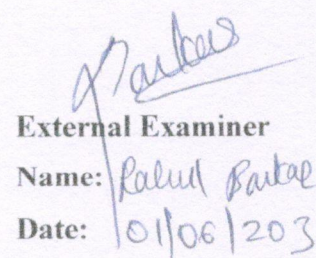 External Examiner
Name: Rahul Barkae
Date: 01/06/203